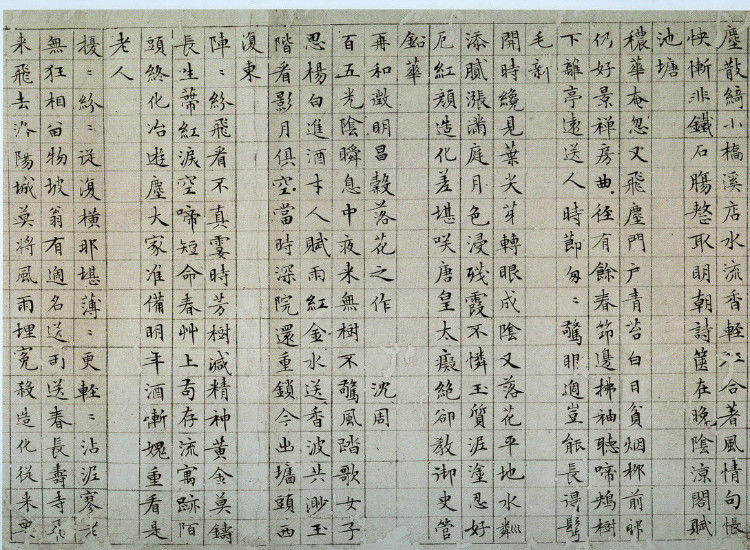 塵散綺小橋溪店水流香輕合著風情句悵
快慚非鐵石腸愁取明朝詩篋在晚陰涼閣賦
池塘
穠華奄忽又飛塵門戶青苔白日貧烟柳前邨
仍好景禅房曲径有餘春笻邊拂袖聽啼鴂樹
下離亭遠送人時節匆〻驚眼過豈能長得髩
毛新
開時纔見葉尖芽轉眼成陰又落花平地水紋
添膩漲滿庭月色浸殘霞不憐玉質泥塗忍好
厄紅顏造化差堪咲唐皇太癡絕卻教御史管
鉛華
再和徵明昌穀落花之作 沈周
百五光陰瞬息中夜来無樹不驚風踏歌女子
忍楊白進酒才人賦雨紅金水送香波共渺玉
階看影月俱空當時深院還重鎖今出墻頭西
復東
陣〻紛飛看不真霎時芳樹減精神黃金莫鑄
長生蒂紅淚空啼短命春艸上苟存流寓跡陌
頭終化冶遊塵大家准備明年酒慚愧重看是
老人
擾〻紛〻從復橫那堪薄〻更輕〻沾泥寥
無狂相留物坡翁有過名送雨送春長壽寺飛
来飛去洛陽城莫將風雨埋冤殺造化從来